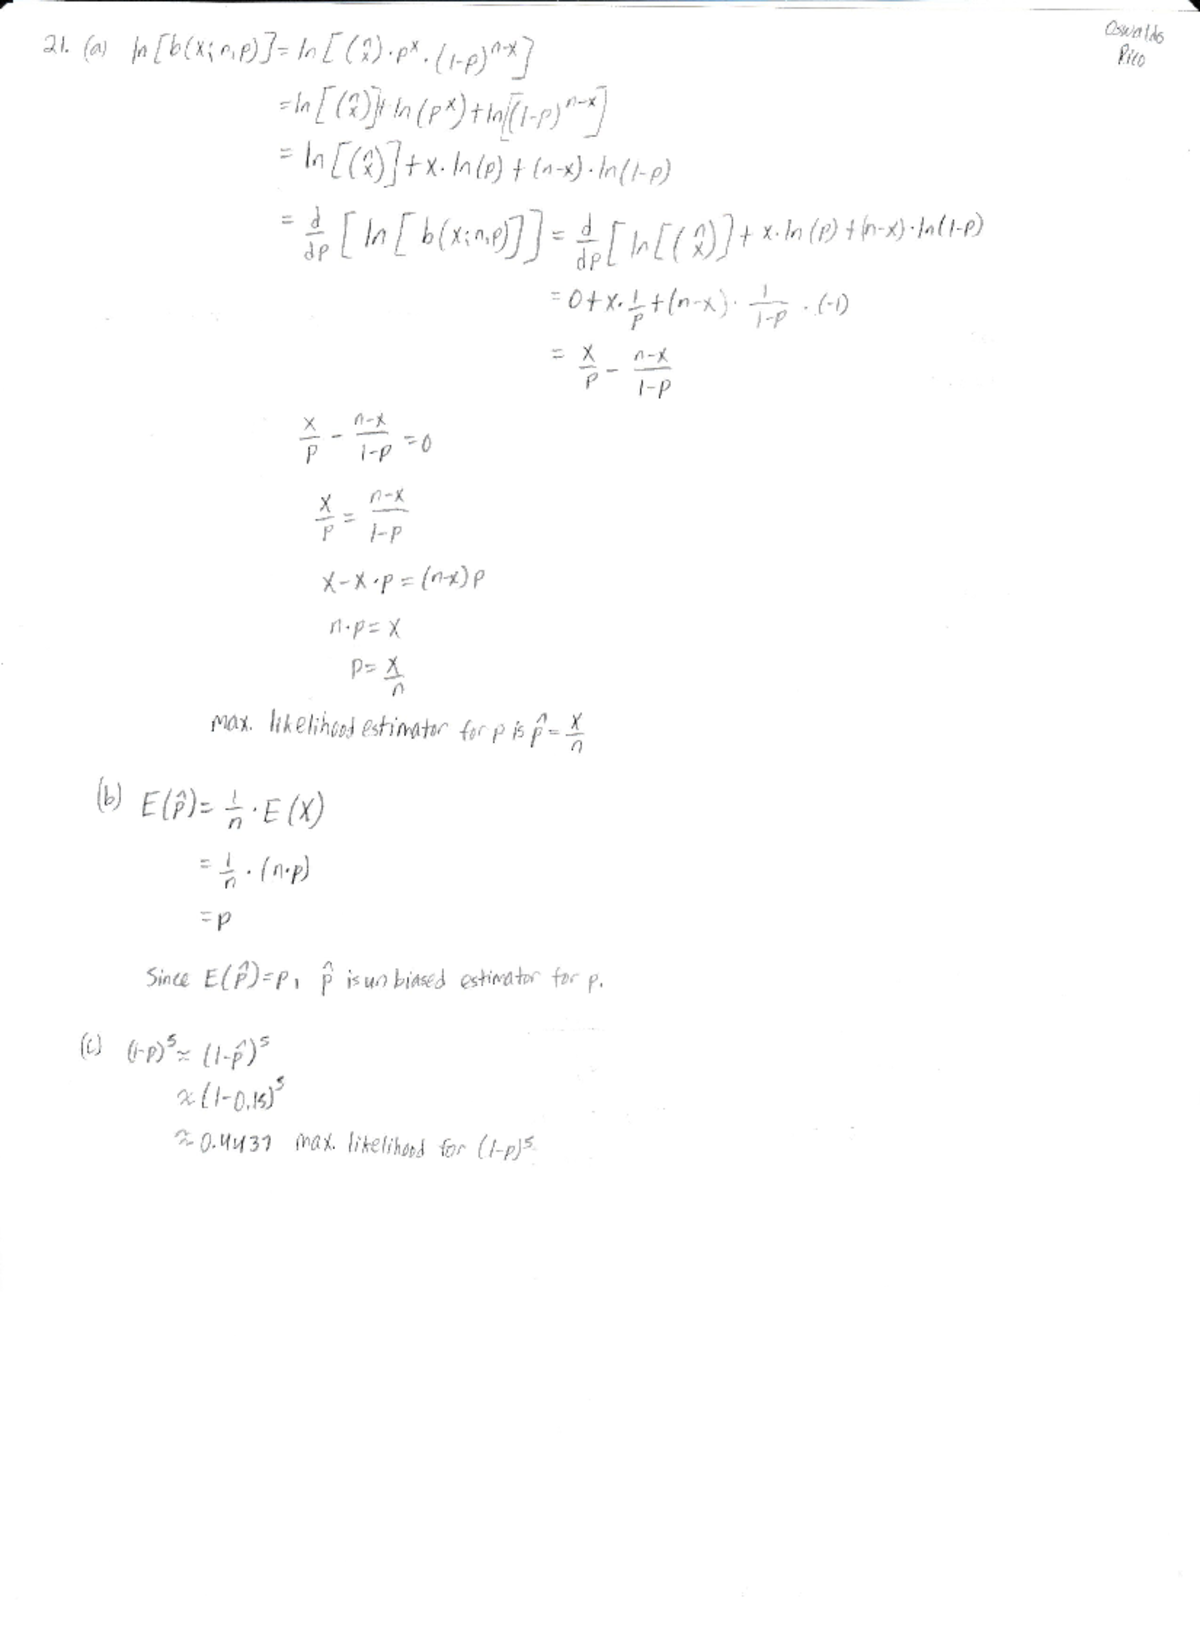 Oswaldo
Pico
21. (a) ln[b(x;n,p)] = ln[(n x)·p^x·(1-p)^(n-x)]
= ln[(n x)] + ln(p^x) + ln[(1-p)^(n-x)]
= ln[(n x)] + x·ln(p) + (n-x)·ln(1-p)
= d/dp [ln[b(x;n,p)]] = d/dp [ln[(n x)] + x·ln(p) + (n-x)·ln(1-p)
= 0 + x·1/p + (n-x)·1/(1-p)·(-1)
= x/p - (n-x)/(1-p)
x/p - (n-x)/(1-p) = 0
x/p = (n-x)/(1-p)
x-x·p = (n-x)p
n·p = x
p = x/n
max. likelihood estimator for p is p̂ = x/n
(b) E(p̂) = 1/n·E(X)
= 1/n·(n·p)
= p
Since E(p̂)=p, p̂ is unbiased estimator for p.
(c) (1-p)^5 ≈ (1-p̂)^5
≈ (1-0.15)^5
≈ 0.4437 max. likelihood for (1-p)^5